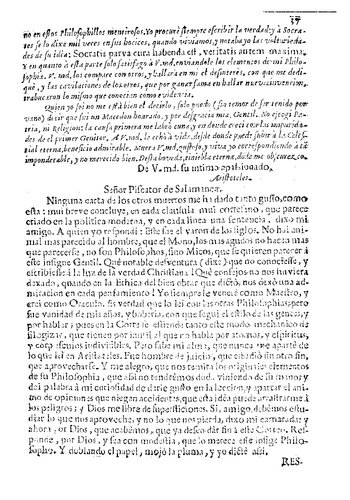 17
no en estos Philosophillos mentirosos. Yo procuré siempre escribir la verdad; y à Socra-
tes se lo dixe mil veces en sus hocicos, quando viviamos, y notaba yo las vulturiedades
de su idèa: Socratis parva cura habenda est, veritatis autem maxima.
Y en quanto à esta parte solo satisfago à V. md. enviandole los elementos de mi Philo-
sophia. V. md. los compare con otros, y hallarà en mi el desinterès, con que me dedi-
què, y las cavilaciones de los otros, que por ganar fama en hallar nueva invencion,
trabucaron lo mismo que conocian como evidencia.
Quien yo soi no me està bien el decirlo, solo puedo (sin temor de ser tenido por
vano) decir que fui un Macedon honrado, y por desgracia mia, Gentil. No elegì Pa-
tria, ni Religion; la causa primera me labrò cuna, y en donde crecì con las
del primer Genitor. A V. md. le echò la vida, desde donde puede subir à la Celes-
tial eterna, beneficio admirable. Muera V. md. gustoso, y viva yo correspondiendo à el
imponderable, y no merecido bien. Desta boveda, tiniebla eterna, donde me obscurezco.
De V. md. su intimo apasionado.
Aristoteles.
Señor Piscator de Salamanca.
Ninguna carta de los otros muertos me ha dado tanto gusto, como
esta: mui breve concluye, en cada clausula mui cortesano, que parece
criado en la politica moderna, y en cada linea una sentencia, dixo mi
amigo. A quien yo respondì: Este fue el varon de los siglos. No hai ani-
mal mas parecido al hombre, que el Mono, los mas agudos no hacen mas
que parecerse, no son Philosophos, sino Micos, que se quieren parecer à
este insigne Gentil. Què notable desventura (dixe) que no conociesse, y
escribiesse à la luz de la verdad Christiana! Què consejos no nos huviera
dexado, quando en la Ethica del bien obrar que dictò, nos dexò una ad-
miracion en cada pensamiento! Yo siempre le venerè como Maestro, y
creì como Oraculo. Es verdad que lo leì con las otras Philosophias; pero
fue vanidad de mis años, y boberia, con que seguì el estilo de las gentes,
por hablar; pues en la Corte se estiende tanto este modo mechanico de
silogizar, que tienen por inutil el que no habla por atomos, y espiritus,
y corpusculos indivisibles. Pero sabe mi alma, que nunca me apartè de
lo que leì en Aristoteles. Fue hombre de juicio, que estudiò sin otro fin,
que aprovecharse. Y me alegro, que nos remita los originales elementos
de su Philosophia, que assi no tendrèmos duda viniendo de su mano; y
dei palabra à mi curiosidad de darle gusto en la leccion, y apartar el ani-
mo de opiniones que niegan accidentes, que esta idèa puede arrastrarme à
los peligros; y Dios me libre de supersticiones. Si, amigo, debemos estu-
diar lo que nos aproveche, y no lo que nos pierda, dixo mi camarada: y
ahora, por Dios, que acabemos, que ya deseo dàr fin à este Correo. Res-
ponde, por Dios, y sea con modestia, que lo merece este insigne Philo-
sopho. Y doblando el papel, mojò la pluma, y yo dictè assi.
RES-